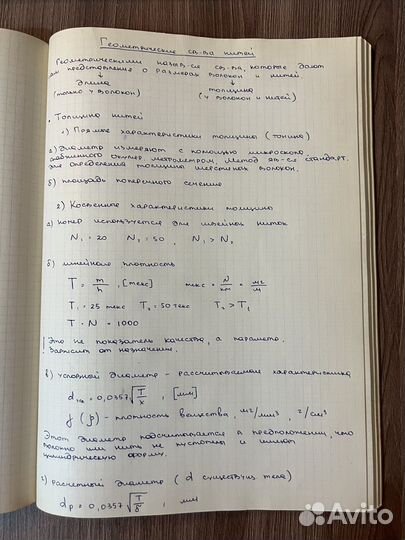 Геометрические св-ва нитей
Геометрическими назыв-ся св-ва, которые дают
нам представление о размерах волокон и нитей
длина
толщина
(только у волокон)
(у волокон и нитей)
• Толщина нитей
1) Прямые характеристики толщины (тонина)
а) диаметр измеряют с помощью микроско
окуляр микрометром. Метод яв-ся стандарт.
для определения толщины шерстяных волокон.
б) площадь поперечного сечения
2) Косвенные характеристики толщины
а) номер используется для швейных ниток
N₁ = 20 N₂ = 50 , N₁ > N₂
б) линейная плотность
T = m/h , [текс] текс = = мг/м
T₁ = 25 текс T₂ = 50 текс T₂ > T₁
T · N = 1000
! Это не показатель качества, а параметр.
Зависит от назначения.
в) условный диаметр - рассчитываемая характеристика
= 0,0357 , [мм]
γ (ρ) - плотность вещества, мг/мм³, г/см³
Этот диаметр подсчитывается в предположении, что
волокно или нить не пустотны и имеют
цилиндрическую форму.
г) расчетный диаметр (d существ-их тела)
dр = 0,0357 √T/δ , мм
Avito